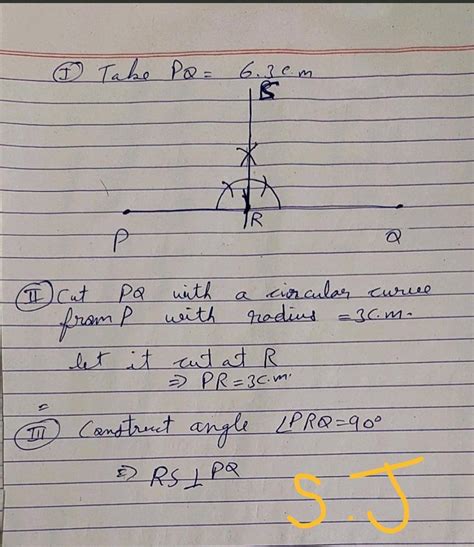 (I) Take PQ = 6.3 c.m
S
R
P
Q
(II) Cut PQ with a circular curve
from P with radius = 3 c.m.
let it cut at R
⇒ PR = 3 c.m.
=
(III) Construct angle ∠PRQ = 90°
⇒ RS ⊥ PQ
S.J